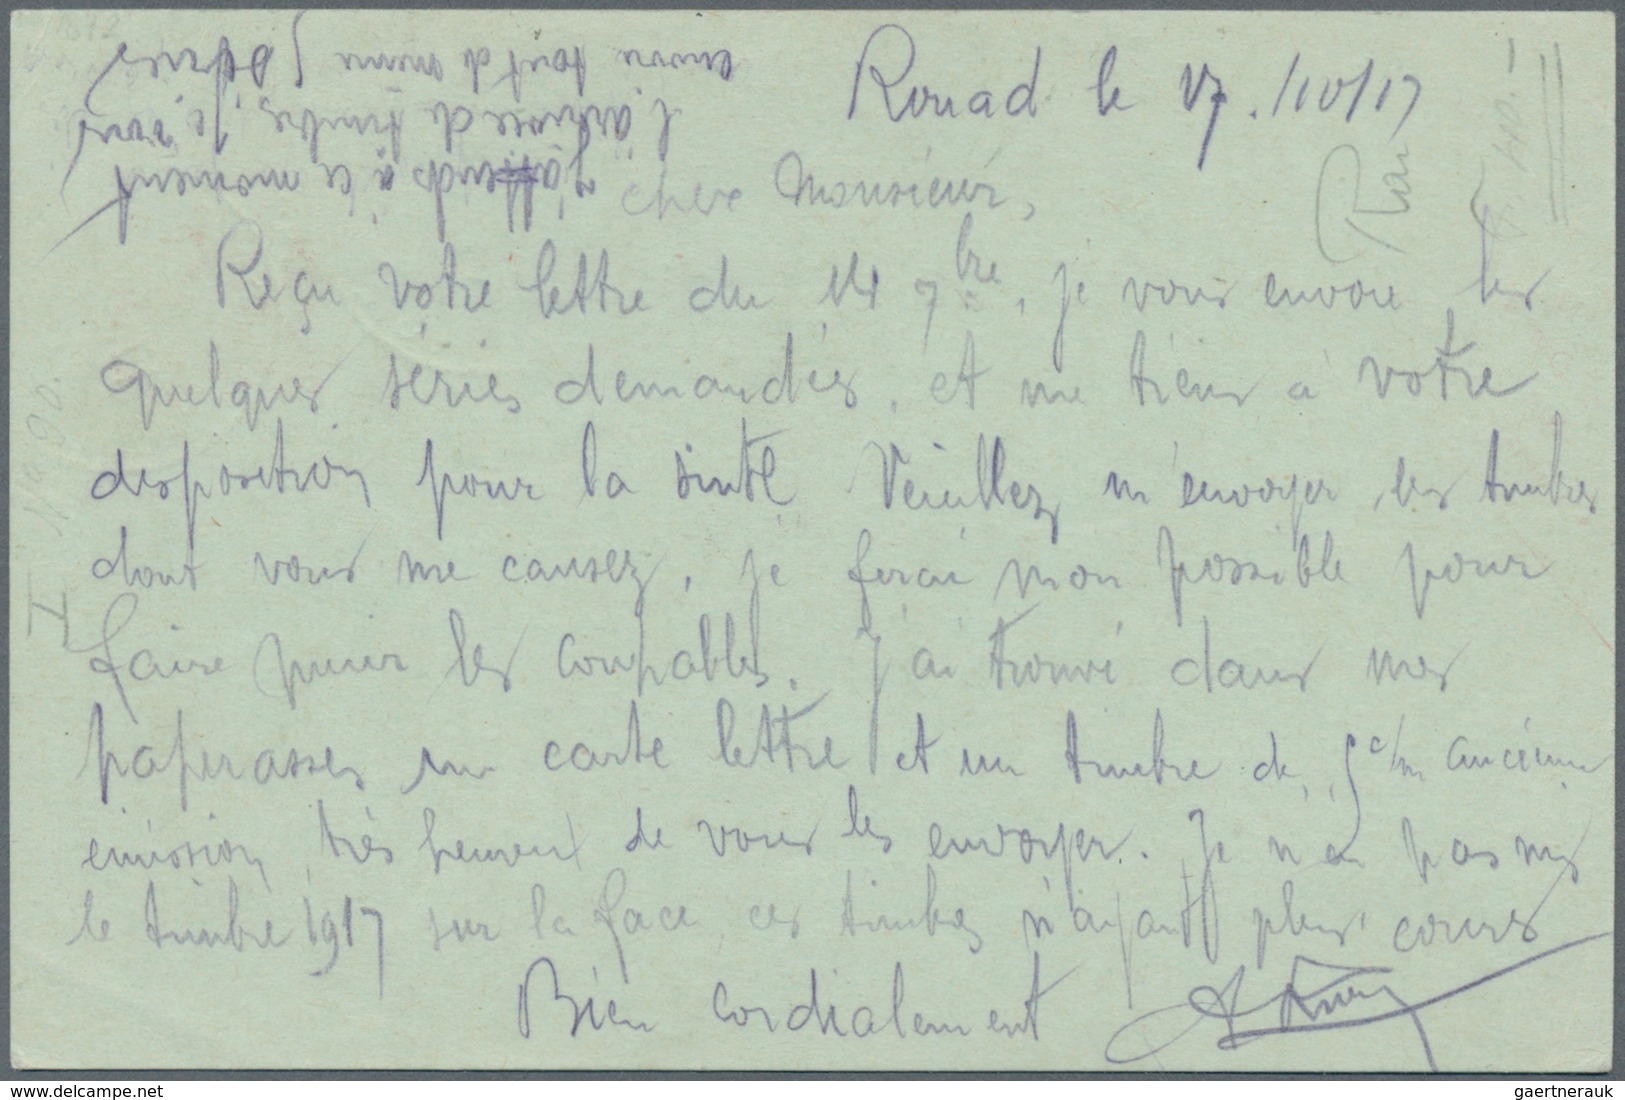 Rouad le 17./10/17
cher Monsieur,
Reçu votre lettre du 14 7bre, je vous envoie les
quelques séries demandées, et me tiens à votre
disposition pour la suite Veuillez m'envoyer les timbres
dont vous me causez, je ferai mon possible pour
faire punir les coupables. J'ai trouvé dans mes
paperasses une carte lettre et un timbre de 5 c/m ancienne
emission, très heureux de vous les envoyer. Je n'ai pas mis
le timbre 1917 sur la face, ces timbres n'ayant plus cours
Bien cordialement
J'attends à ce moment
l'arrivée de timbres, je vous
envoie tout de même 5 séries
N° 90.
I
gaertnerauk @ www.delcampe.net